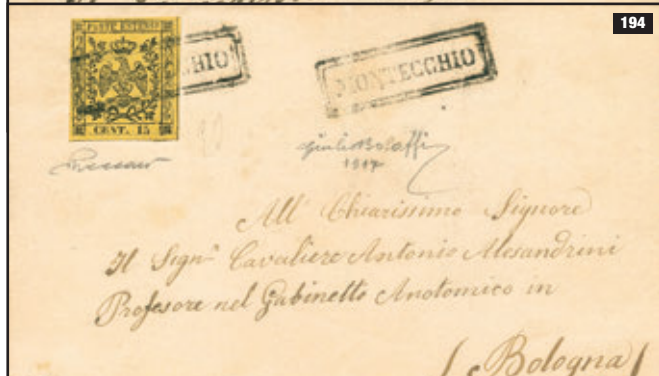 194
POSTE ESTENSI
CENT. 15
CCHIO
MONTECCHIO
Giulio Bolaffi
All' Chiarissimo Signore
Il Sign.r Cavaliere Antonio Alesandrini
Profesore nel Gabinetto Anotomico in
Bologna